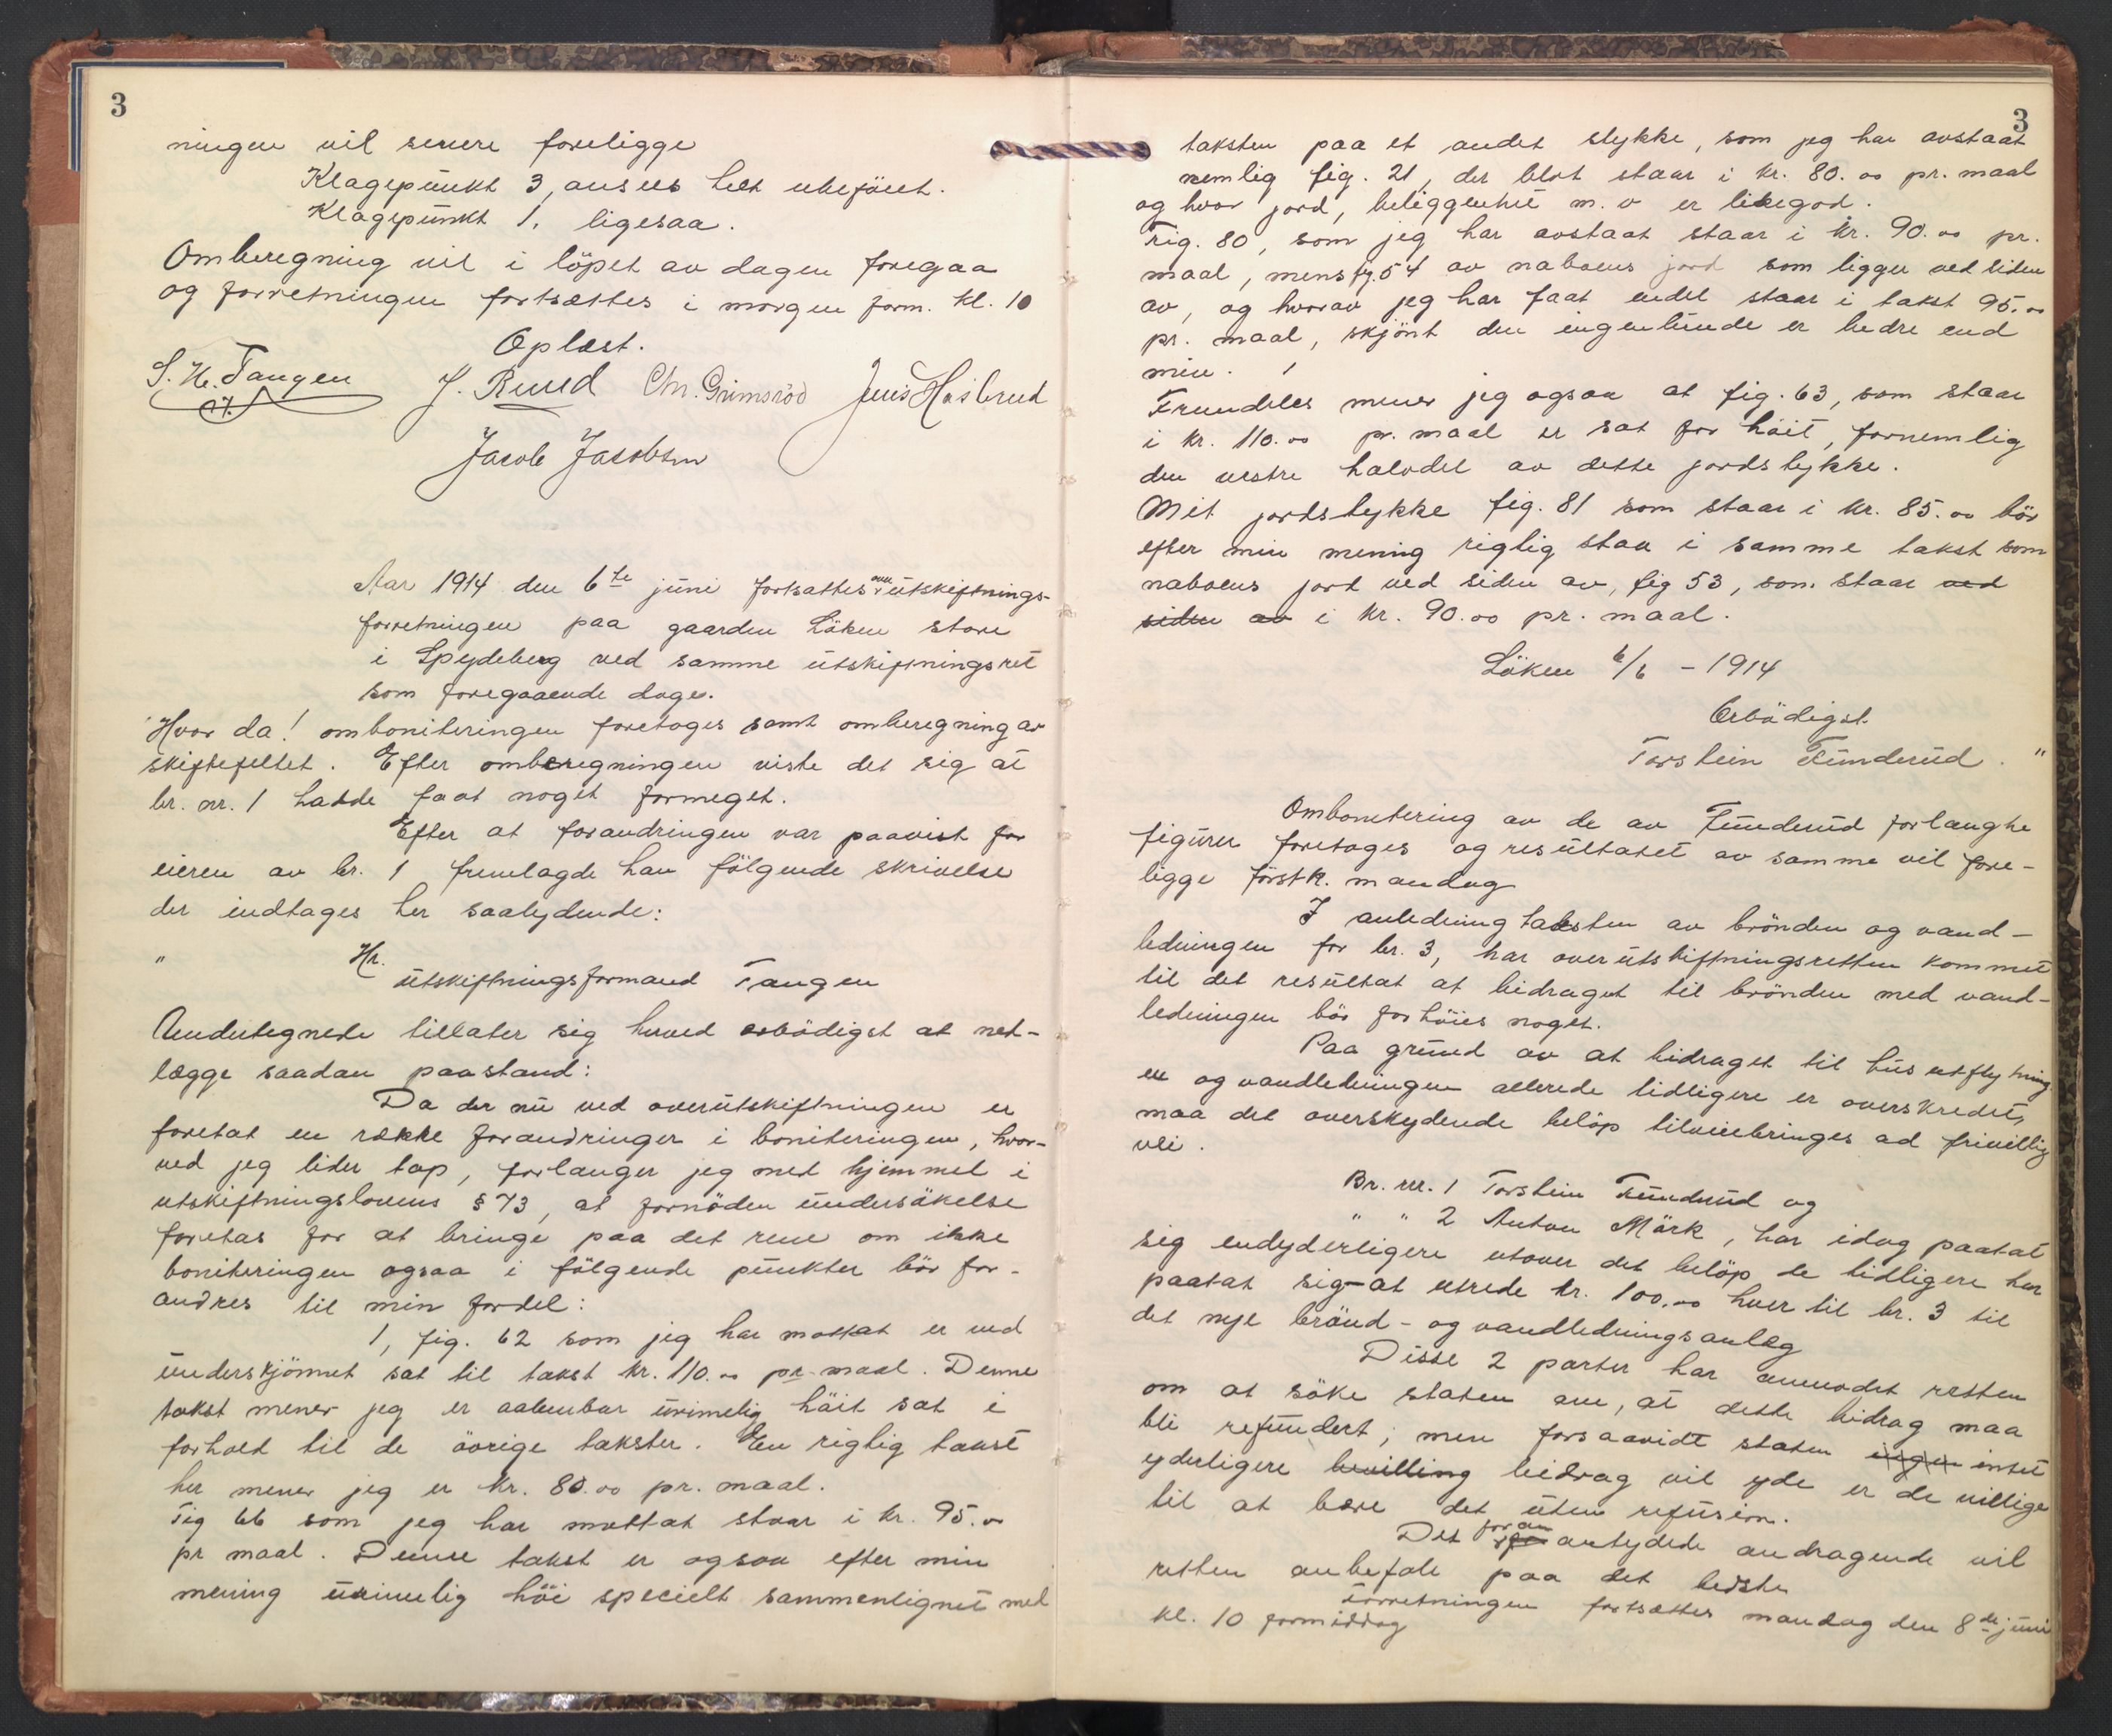 3
ningen vil senere foreligge
Klagepunkt 3, ansees helt ubeföiet.
Klagepunkt 1, ligesaa.
Omberegning vil i löpet av dagen foregaa
og forretningen fortsættes i morgen form. kl. 10
Oplæst.
S. H. Tangen J. Ruud Chr. Grimsröd Jens Hasbrud
Jacob Jacobsen
Aar 1914 den 6te juni fortsattes over utskiftnings-
forretningen paa gaarden Löken store
i Spydeberg ved samme utskiftningsret
som foregaaende dage.
Hvor da! omboniteringen foretoges samt omberegning av
skiftefeltet. Efter omberegningen viste det sig at
br. nr. 1 hadde faat noget formeget.
Efter at forandringen var paavist for
eieren av br. 1 fremlagde han fölgende skrivelse
der indtages her saalydende:
" Hr.
utskiftningsformand Tangen
Undertegnede tillater sig herved erbödigst at ned-
lægge saadan paastand:
Da der nu ved overutskiftningen er
foretat en række forandringer i boniteringen, hvor-
ved jeg lider tap, forlanger jeg med hjemmel i
utskiftningslovens § 73, at fornöden undersökelse
foretas for at bringe paa det rene om ikke
boniteringen ogsaa i fölgende punkter bör for-
andres til min fordel:
1, fig. 62 som jeg har mottat er ved
underskjönnet sat til takst kr. 110.00 pr. maal. Denne
takst mener jeg er aabenbar urimelig höit sat i
forhold til de övrige takster. En rigtig takst
her mener jeg er kr. 80.00 pr. maal.
Fig 66 som jeg har mottat staar i kr. 95.00
pr maal. Denne takst er ogsaa efter min
mening urimelig höi specielt sammenlignet med
3
taksten paa et andet stykke, som jeg har avstaat
nemlig fig. 21, der blot staar i kr. 80.00 pr. maal
og hvor jord, beliggenhet m.v er likegod.
Fig. 80, som jeg har avstaat staar i kr. 90.00 pr.
maal, mens fig. 54 av naboens jord som ligger ved siden
av, og hvorav jeg har faat endel staar i takst 95.00
pr. maal, skjönt den ingenlunde er bedre end
min.
Fremdeles mener jeg ogsaa at fig. 63, som staar
i kr. 110.00 pr. maal er sat for höit, fornemlig
den vestre halvdel av dette jordstykke.
Mit jordstykke fig. 81 som staar i kr. 85.00 bör
efter min mening rigtig staa i samme takst som
naboens jord ved siden av, fig 53, som staar ved
siden av i kr. 90.00 pr. maal.
Löken 6/6 - 1914
Erbödigst
Torstein Funderud. "
Ombonitering av de av Funderud forlangte
figurer foretoges og resultatet av samme vil fore-
ligge förstk. mandag
I anledning taksten av brönden og vand-
ledningen for br. 3, har overutskiftningsretten kommet
til det resultat at bidraget til brönden med vand-
ledningen bör forhöies noget.
Paa grund av at bidraget til husutflytning
en og vandledningen allerede tidligere er overskredet,
maa det overskydende belöp tilveiebringes ad frivillig
vei.
Br. nr. 1 Torstein Funderud og
" " 2 Anton Mörk, har idag paatat
sig endyderligere utover det belöp de tidligere har
paatat sig - at utrede kr. 100.00 hver til br. 3 til
det nye brönd- og vandledningsanlæg
Disse 2 parter har anmodet retten
om at söke staten om, at dette bidrag maa
bli refundert; men forsaavidt staten ingen intet
yderligere bevilling bidrag vil yde er de villige
til at bære det uten refusion.
Det foran antydede andragende vil
retten anbefale paa det bedste
Forretningen fortsættes mandag den 8de juni
kl. 10 formiddag